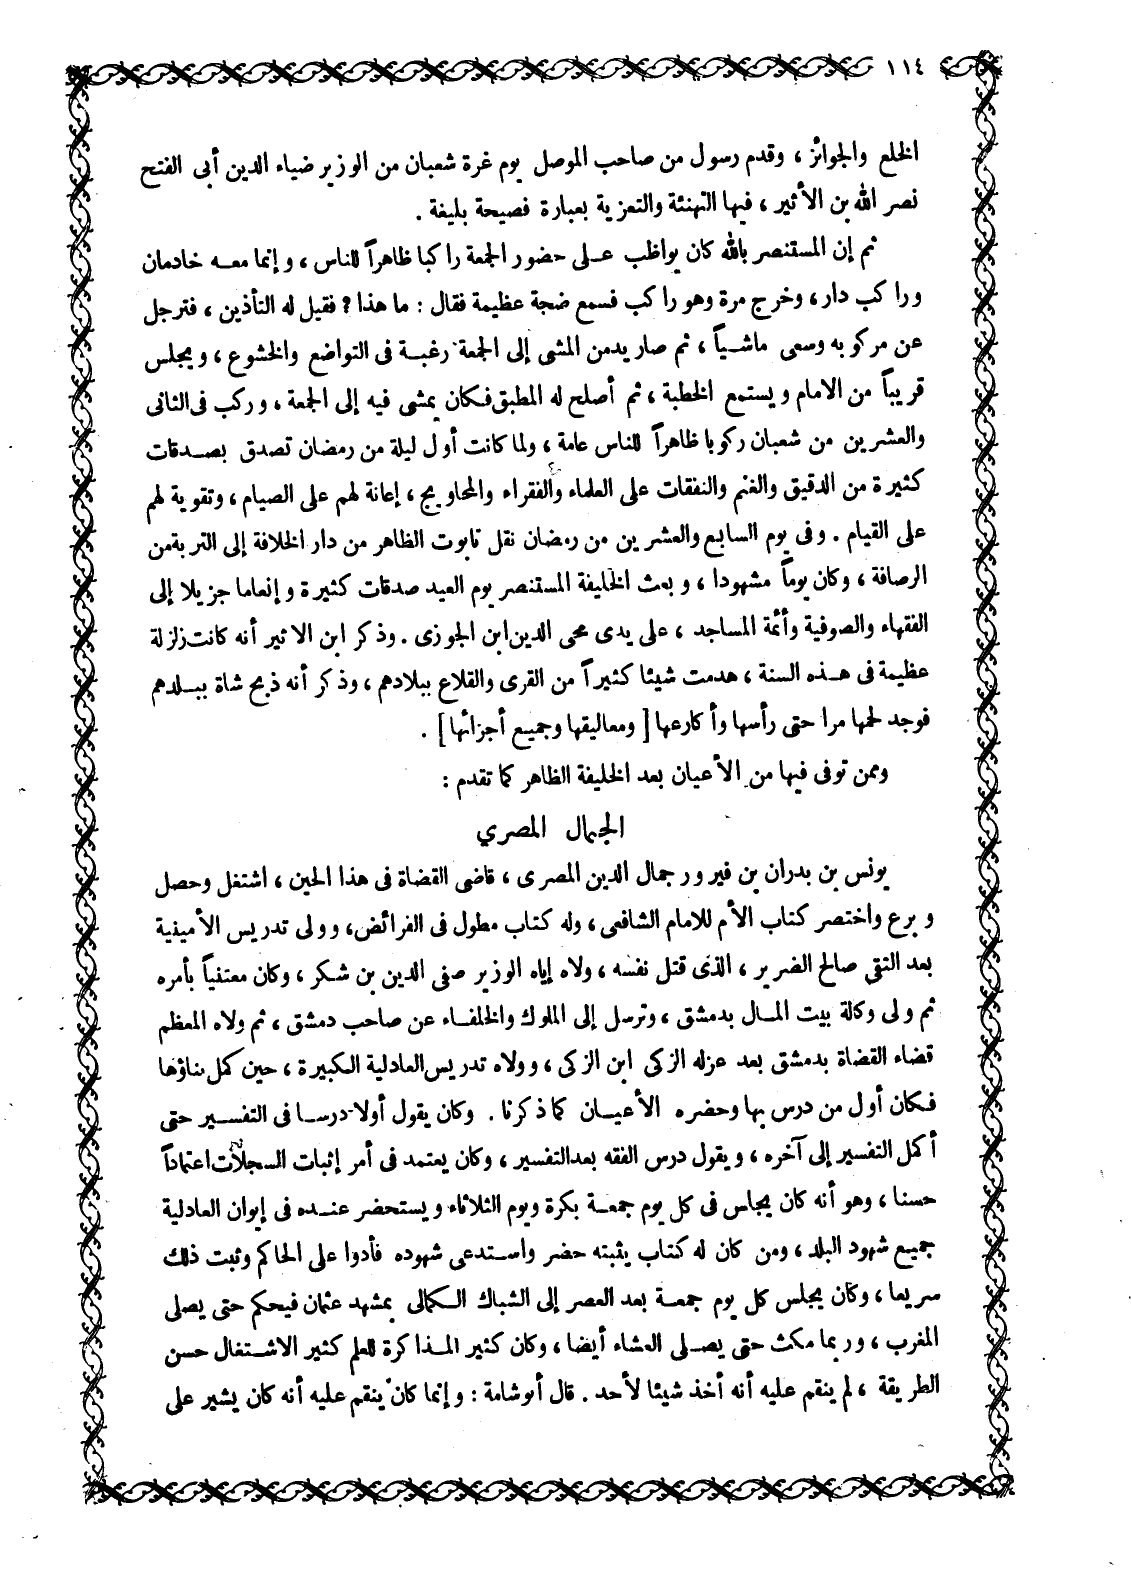 ١١٤
الخلع والجوائز ، وقدم رسول من صاحب الموصل يوم غرة شعبان من الوزير ضياء الدين أبى الفتح
نصر الله بن الأثير ، فيها التهنئة والتعزية بعبارة فصيحة بليغة .
ثم إن المستنصر بالله كان يواظب على حضور الجمعة راكبا ظاهراً للناس ، وإنما معه خادمان
وراكب دار ، وخرج مرة وهو راكب فسمع ضجة عظيمة فقال : ما هذا ؟ فقيل له التأذين ، فترجل
عن مركوبه وسعى ماشياً ، ثم صار يدمن المشى إلى الجمعة رغبة فى التواضع والخشوع ، ويجلس
قريباً من الامام ويستمع الخطبة ، ثم أصلح له المطبق فكان يمشى فيه إلى الجمعة ، وركب فى الثانى
والعشرين من شعبان ركوبا ظاهراً للناس عامة ، ولما كانت أول ليلة من رمضان تصدق بصدقات
كثيرة من الدقيق والغنم والنفقات على العلماء والفقراء والمحاويج ، إعانة لهم على الصيام ، وتقوية لهم
على القيام . وفى يوم السابع والعشرين من رمضان نقل تابوت الظاهر من دار الخلافة إلى التربة من
الرصافة ، وكان يوماً مشهودا ، وبعث الخليفة المستنصر يوم العيد صدقات كثيرة وإنعاما جزيلا إلى
الفقهاء والصوفية وأئمة المساجد ، على يدى محى الدين ابن الجوزى . وذكر ابن الاثير أنه كانت زلزلة
عظيمة فى هذه السنة ، هدمت شيئا كثيراً من القرى والقلاع ببلادهم ، وذكر أنه ذبح شاة ببلدهم
فوجد لحمها مرا حتى رأسها وأكارعها [ ومعاليقها وجميع أجزائها ] .
وممن توفى فيها من الأعيان بعد الخليفة الظاهر كما تقدم :
الجمال المصري
يونس بن بدران بن فيرور جمال الدين المصرى ، قاضى القضاة فى هذا الحين ، اشتغل وحصل
وبرع واختصر كتاب الأم للامام الشافعى ، وله كتاب مطول فى الفرائض ، وولى تدريس الأمينية
بعد التقى صالح الضرير ، الذى قتل نفسه ، ولاه إياه الوزير صفى الدين بن شكر ، وكان معتنياً بأمره
ثم ولى وكالة بيت المال بدمشق ، وترسل إلى الملوك والخلفاء عن صاحب دمشق ، ثم ولاه المعظم
قضاء القضاة بدمشق بعد عزله الزكى ابن الزكى ، وولاه تدريس العادلية الكبيرة ، حين كمل بناؤها
فكان أول من درس بها وحضره الأعيان كما ذكرنا . وكان يقول أولا درسا فى التفسير حتى
أكمل التفسير إلى آخره ، ويقول درس الفقه بعد التفسير ، وكان يعتمد فى أمر إثبات السجلات اعتماداً
حسنا ، وهو أنه كان يجلس فى كل يوم جمعة بكرة ويوم الثلاثاء ويستحضر عنده فى إيوان العادلية
جميع شهود البلد ، ومن كان له كتاب يثبته حضر واستدعى شهوده فأدوا على الحاكم وثبت ذلك
سريعا ، وكان يجلس كل يوم جمعة بعد العصر إلى الشباك الكمالى بمشهد عثمان فيحكم حتى يصلى
المغرب ، وربما مكث حتى يصلى العشاء أيضا ، وكان كثير المذاكرة للعلم كثير الاشتغال حسن
الطريقة ، لم ينقم عليه أنه أخذ شيئا لأحد . قال أبو شامة : وإنما كان ينقم عليه أنه كان يشير على